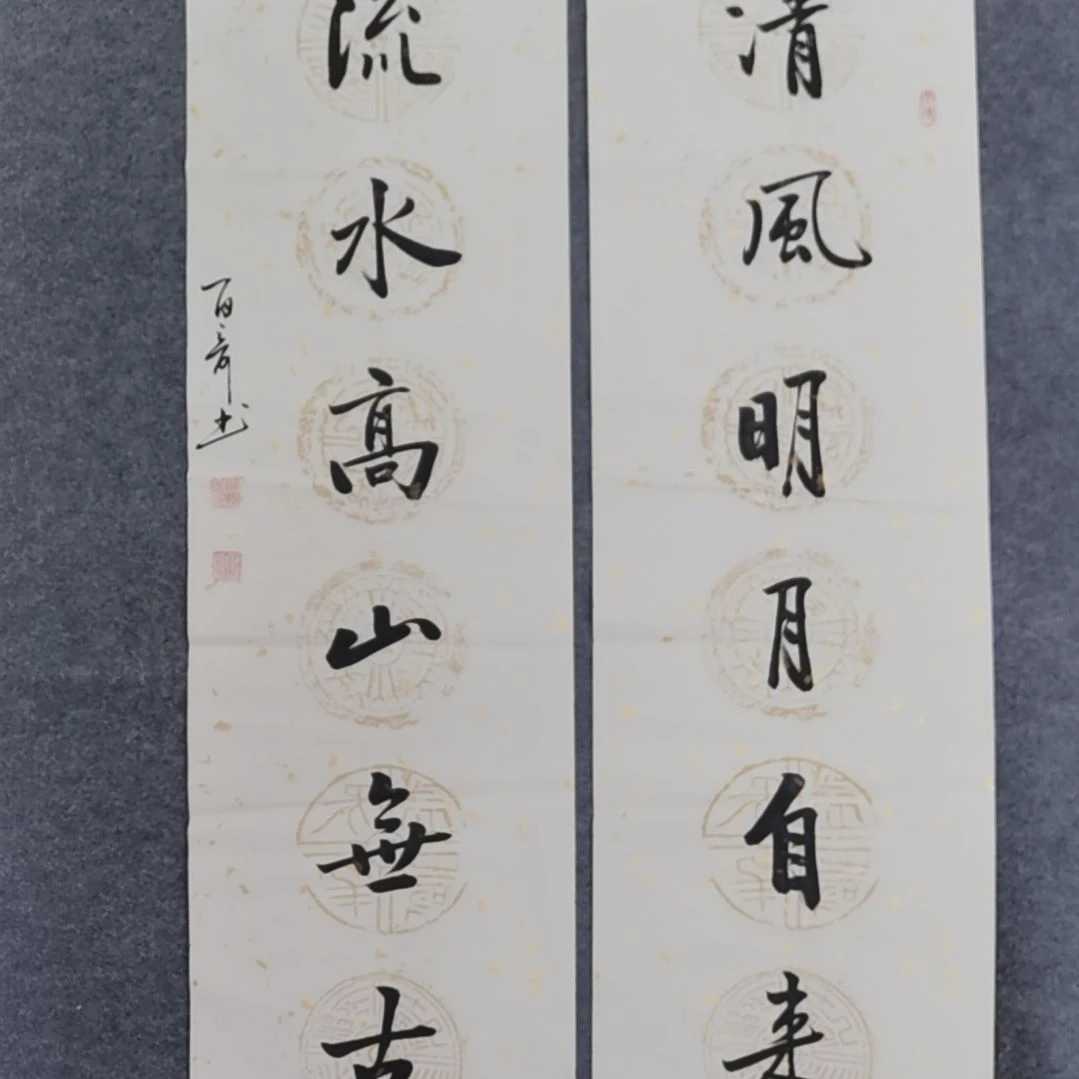 清風明月自来
流水高山無古
百齡书